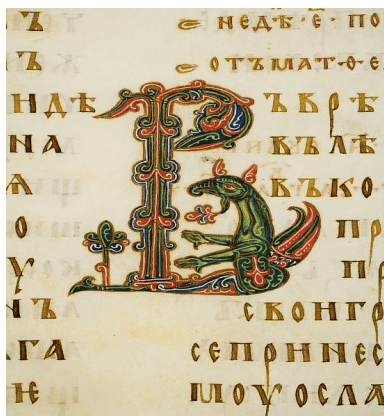 Ъ
Ъ
ИДѢ
НА
Ѧ
О
У
Ъ
ЛГА
НЕДѢ·Е·ПО
ОТЪМАТ·Ѳ·Е
В
ЪВРѢ
ВЪЛѢ
ВЪКО
ПР
ПР
СВОИГР
СЕПРИНЕС
МОУОСЛА